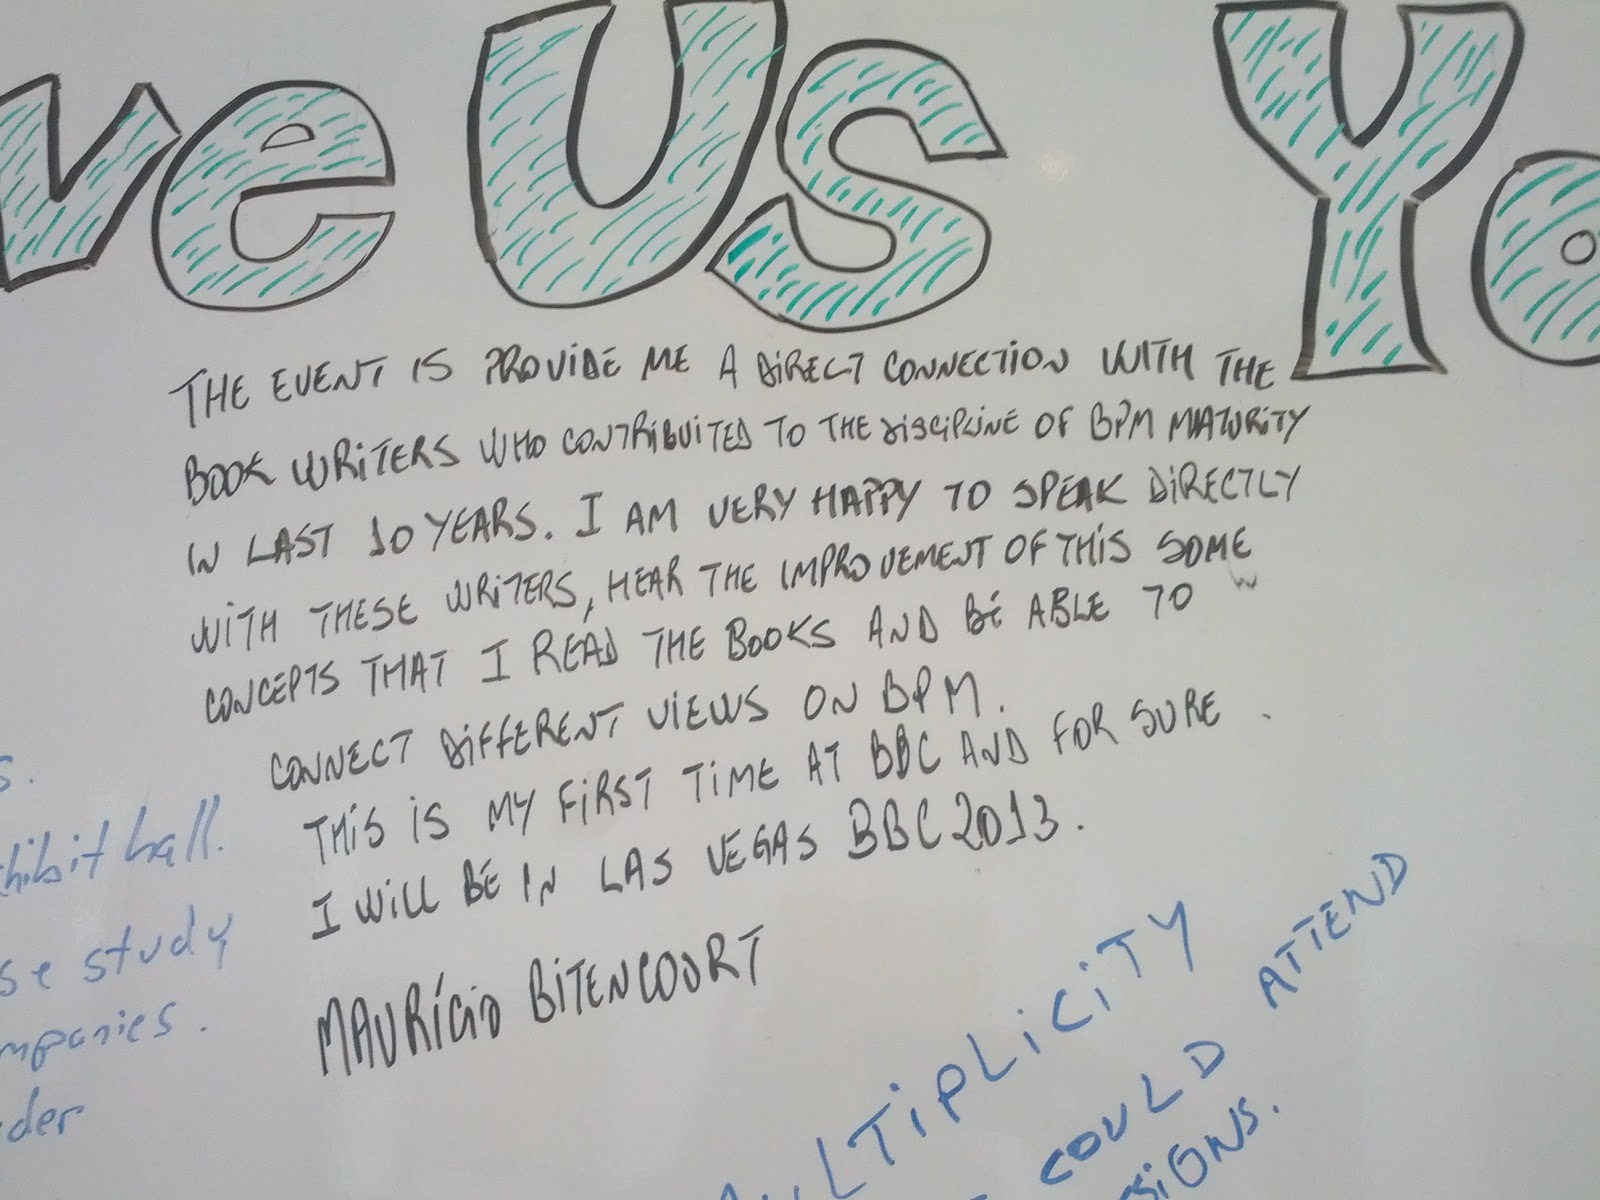 ve Us Yo
THE EVENT IS PROVIDE ME A DIRECT CONNECTION WITH THE
BOOK WRITERS WHO CONTRIBUITED TO THE DISCIPLINE OF BPM MATURITY
IN LAST 10 YEARS. I AM VERY HAPPY TO SPEAK DIRECTLY
WITH THESE WRITERS, HEAR THE IMPROVEMENT OF THIS SOME
CONCEPTS THAT I READ THE BOOKS AND BE ABLE TO
CONNECT DIFFERENT VIEWS ON BPM.
THIS IS MY FIRST TIME AT BBC AND FOR SURE.
I WILL BE IN LAS VEGAS BBC 2013.
MAURÍCIO BITENCOURT
s.
hibit hall.
se study
mpanies.
der
ULTIPLICITY
COULD ATTEND
SIONS.